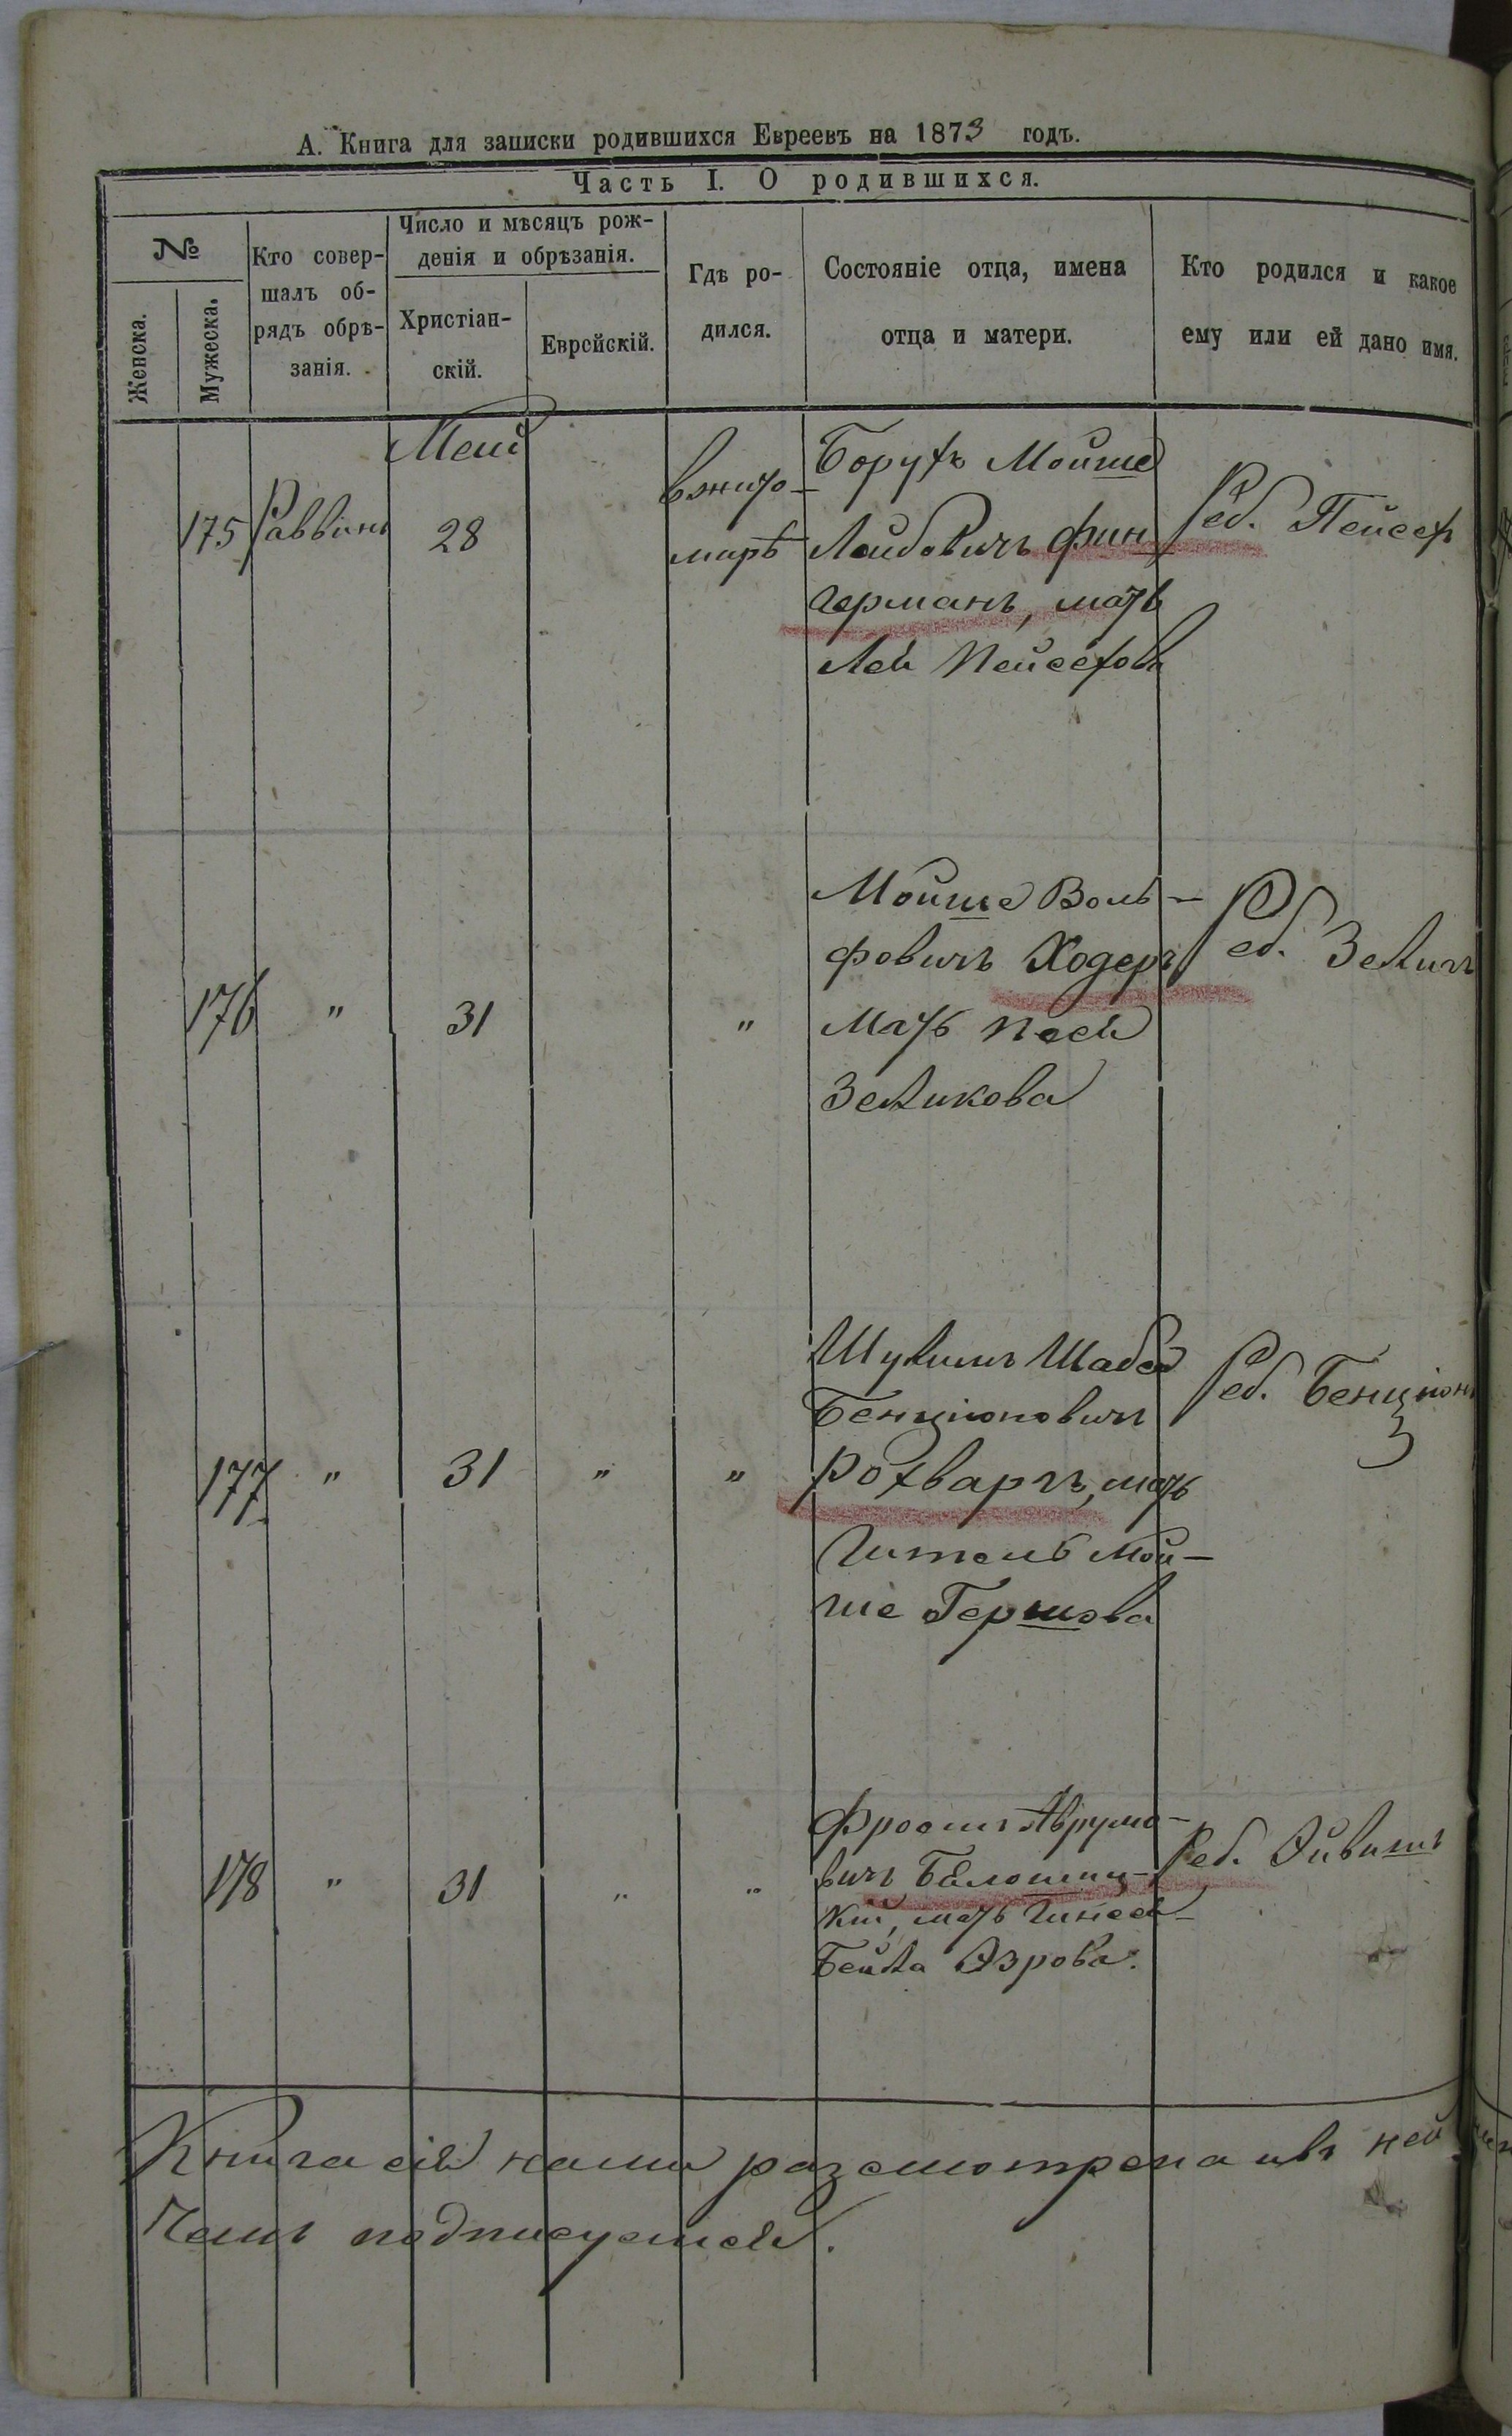 А. Книга для записки родившихся Евреевъ на 1873 годъ.
Часть I. О родившихся.
№
Женска.
Мужеска.
Кто совер-
шалъ об-
рядъ обрѣ-
занія.
Число и мѣсяцъ рож-
денія и обрѣзанія.
Христіан-
скій.
Еврейскій.
Гдѣ ро-
дился.
Состояніе отца, имена
отца и матери.
Кто родился и какое
ему или ей дано имя.
Май
175 Раввинъ 28
вжито-
мирѣ
Борухъ Мойше
Лейбовичъ Фин
германъ, мать
Лея Пейсехова
Реб. Пейсех
176 " 31 "
Мойше Воль-
фовичъ Ходеръ
мать Песя
Зеликова
Реб. Зелигъ
177 " 31 " "
Шулимъ Шабса
Бенціоновичъ
Рохваргъ, мать
Гитель Мой-
ше Гершова
Реб. Бенціонъ
178 " 31 " "
Фроимъ Аврумо-
вичъ Бѣлошиц-
кій, мать Гинеся
Бейла Азрова.
Реб. Айвишъ
Книга сія нами разсмотрена ивъ ней
Чемъ подписуемся.